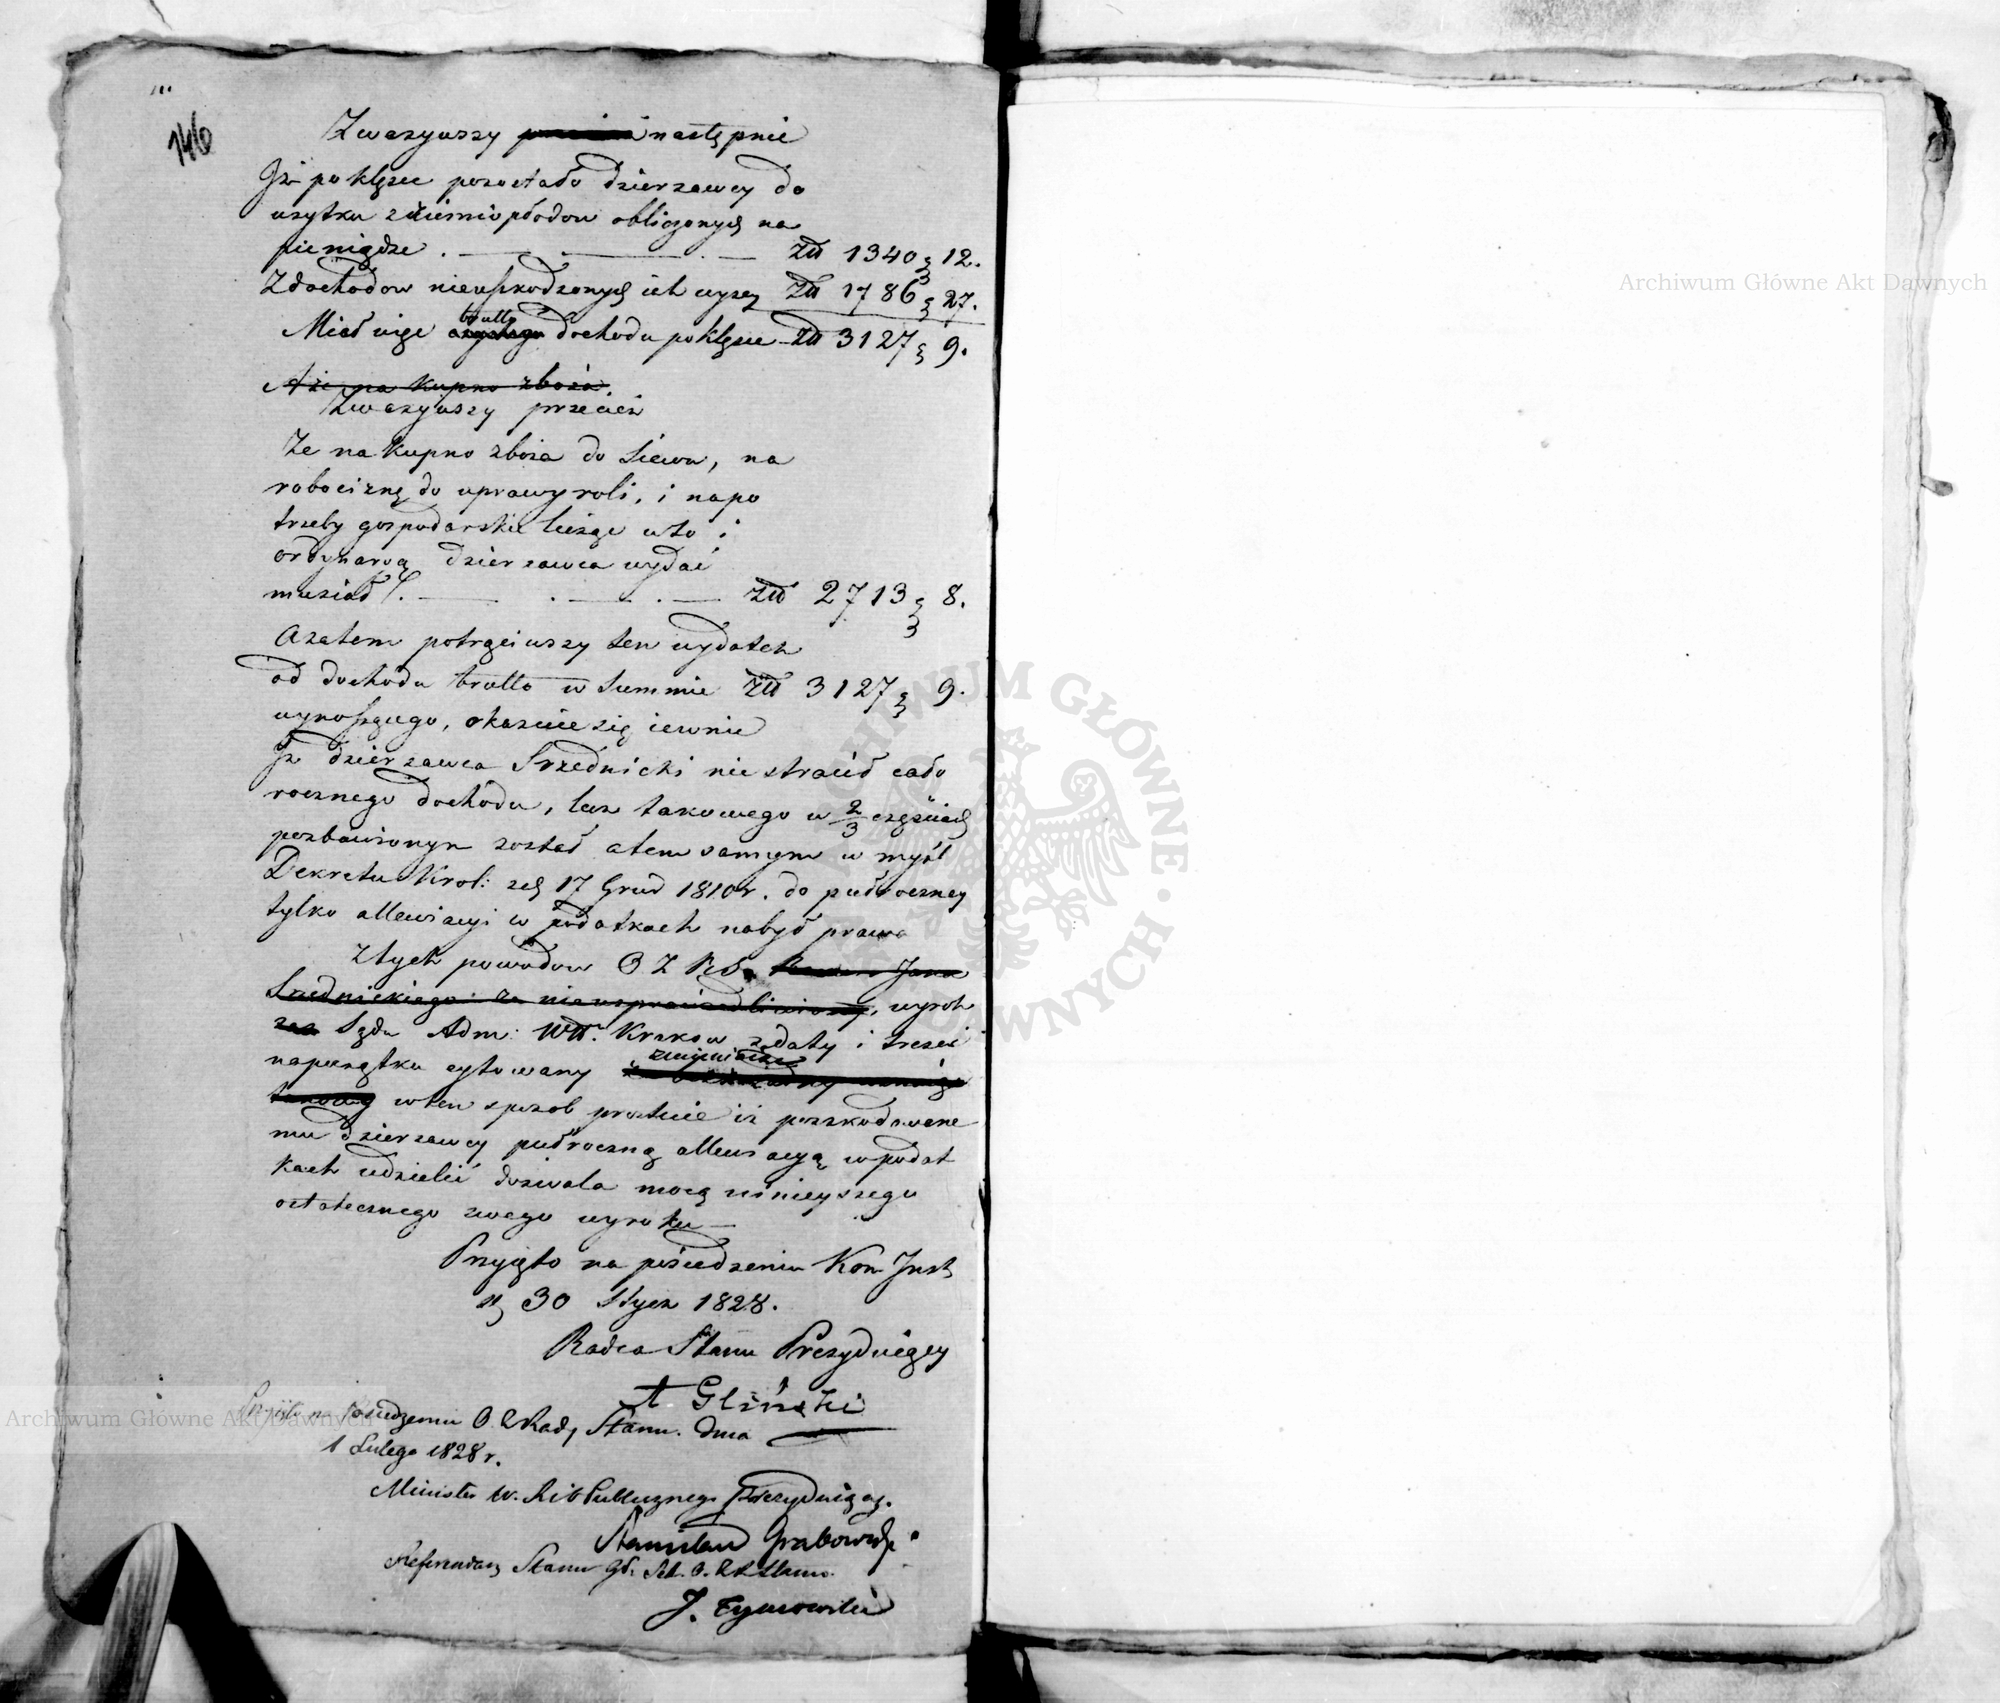 146
Zważywszy następnie
Iż po klęsce pozostało dzierzawcy do
użytku z ziemiopłodow obliczonych na
pieniądze . — . — . — Złł 1340 g 12.
Z dochodow nieuszkodzonych ich wyzey Złł 1786 g 27.
Miał więc brutto dochodu po klęsce – Złł 3127 g 9.
A że na kupno zboża
Zważywszy przecież
Ze na kupno zboża do siewu, na
robociznę do uprawy roli, i na po
trzeby gospodarskie
ordynaryą dzierzawca wydać
musiał . — . — . — Złł 2713 g 8.
A zatem potrąciwszy ten wydatek
od dochodu brutto w Summie Złł 3127 g 9.
wynoszącego, okazuie się iawnie
Iż dzierzawca Srzednicki nie stracił cało
rocznego dochodu, lecz takowego w 2/3 częściach
pozbawionym został a tem samym w myśl
Dekretu Krol: z 17 Grud 1810 r. do pułroczney
tylko allewiacyi w podatkach nabył prawa
Z tych powodow O Z R S. Jana
Srzednickiego za nieusprawiedliwiony, wyrok
Sądu Adm: Wdt. Krakow z daty i treści
na początku cytowany zmieniając
w ten sposob prostuie iż poszkodowane
mu dzierzawcy pułroczną allewiacyą w podat
kach udzielić dozwala mocą ninieyszego
ostatecznego swego wyroku —
Przyięto na posiedzeniu Kom Inst
d 30 Stycz 1828.
Radca Stanu Prezyduiący
A Gliński
Przyięto na posiedzeniu O. Z Rady Stanu. dnia
1 Lutego 1828 r.
Minister W. R i O Publicznego Prezyduiący.
Stanisław Grabowski
Referendarz Stanu Gł. Sek. O. Z R Stanu.
J. Tymowski
Archiwum Główne Akt Dawnych
Archiwum Główne Akt Dawnych
ARCHIWUM GŁÓWNE AKT DAWNYCH